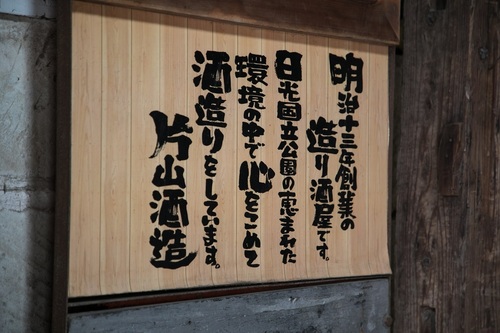 明治十三年創業の
造り酒屋です。
日光国立公園の恵まれた
環境の中で心をこめて
酒造りをしています。
片山酒造